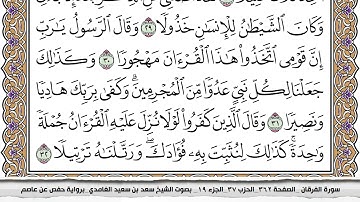 وَكَانَ ٱلشَّيْطَٰنُ لِلْإِنسَٰنِ خَذُولًا ٢٩ وَقَالَ ٱلرَّسُولُ يَٰرَبِّ
إِنَّ قَوْمِى ٱتَّخَذُوا۟ هَٰذَا ٱلْقُرْءَانَ مَهْجُورًا ٣٠ وَكَذَٰلِكَ
جَعَلْنَا لِكُلِّ نَبِىٍّ عَدُوًّا مِّنَ ٱلْمُجْرِمِينَ ۗ وَكَفَىٰ بِرَبِّكَ هَادِيًا
وَنَصِيرًا ٣١ وَقَالَ ٱلَّذِينَ كَفَرُوا۟ لَوْلَا نُزِّلَ عَلَيْهِ ٱلْقُرْءَانُ جُمْلَةً
وَٰحِدَةً ۚ كَذَٰلِكَ لِنُثَبِّتَ بِهِۦ فُؤَادَكَ ۖ وَرَتَّلْنَٰهُ تَرْتِيلًا ٣٢
سورة الفرقان _الصفحة ٣٦٢_ الحزب ٣٧_ الجزء ١٩_ بصوت الشيخ سعد بن سعيد الغامدي_ برواية حفص عن عاصم